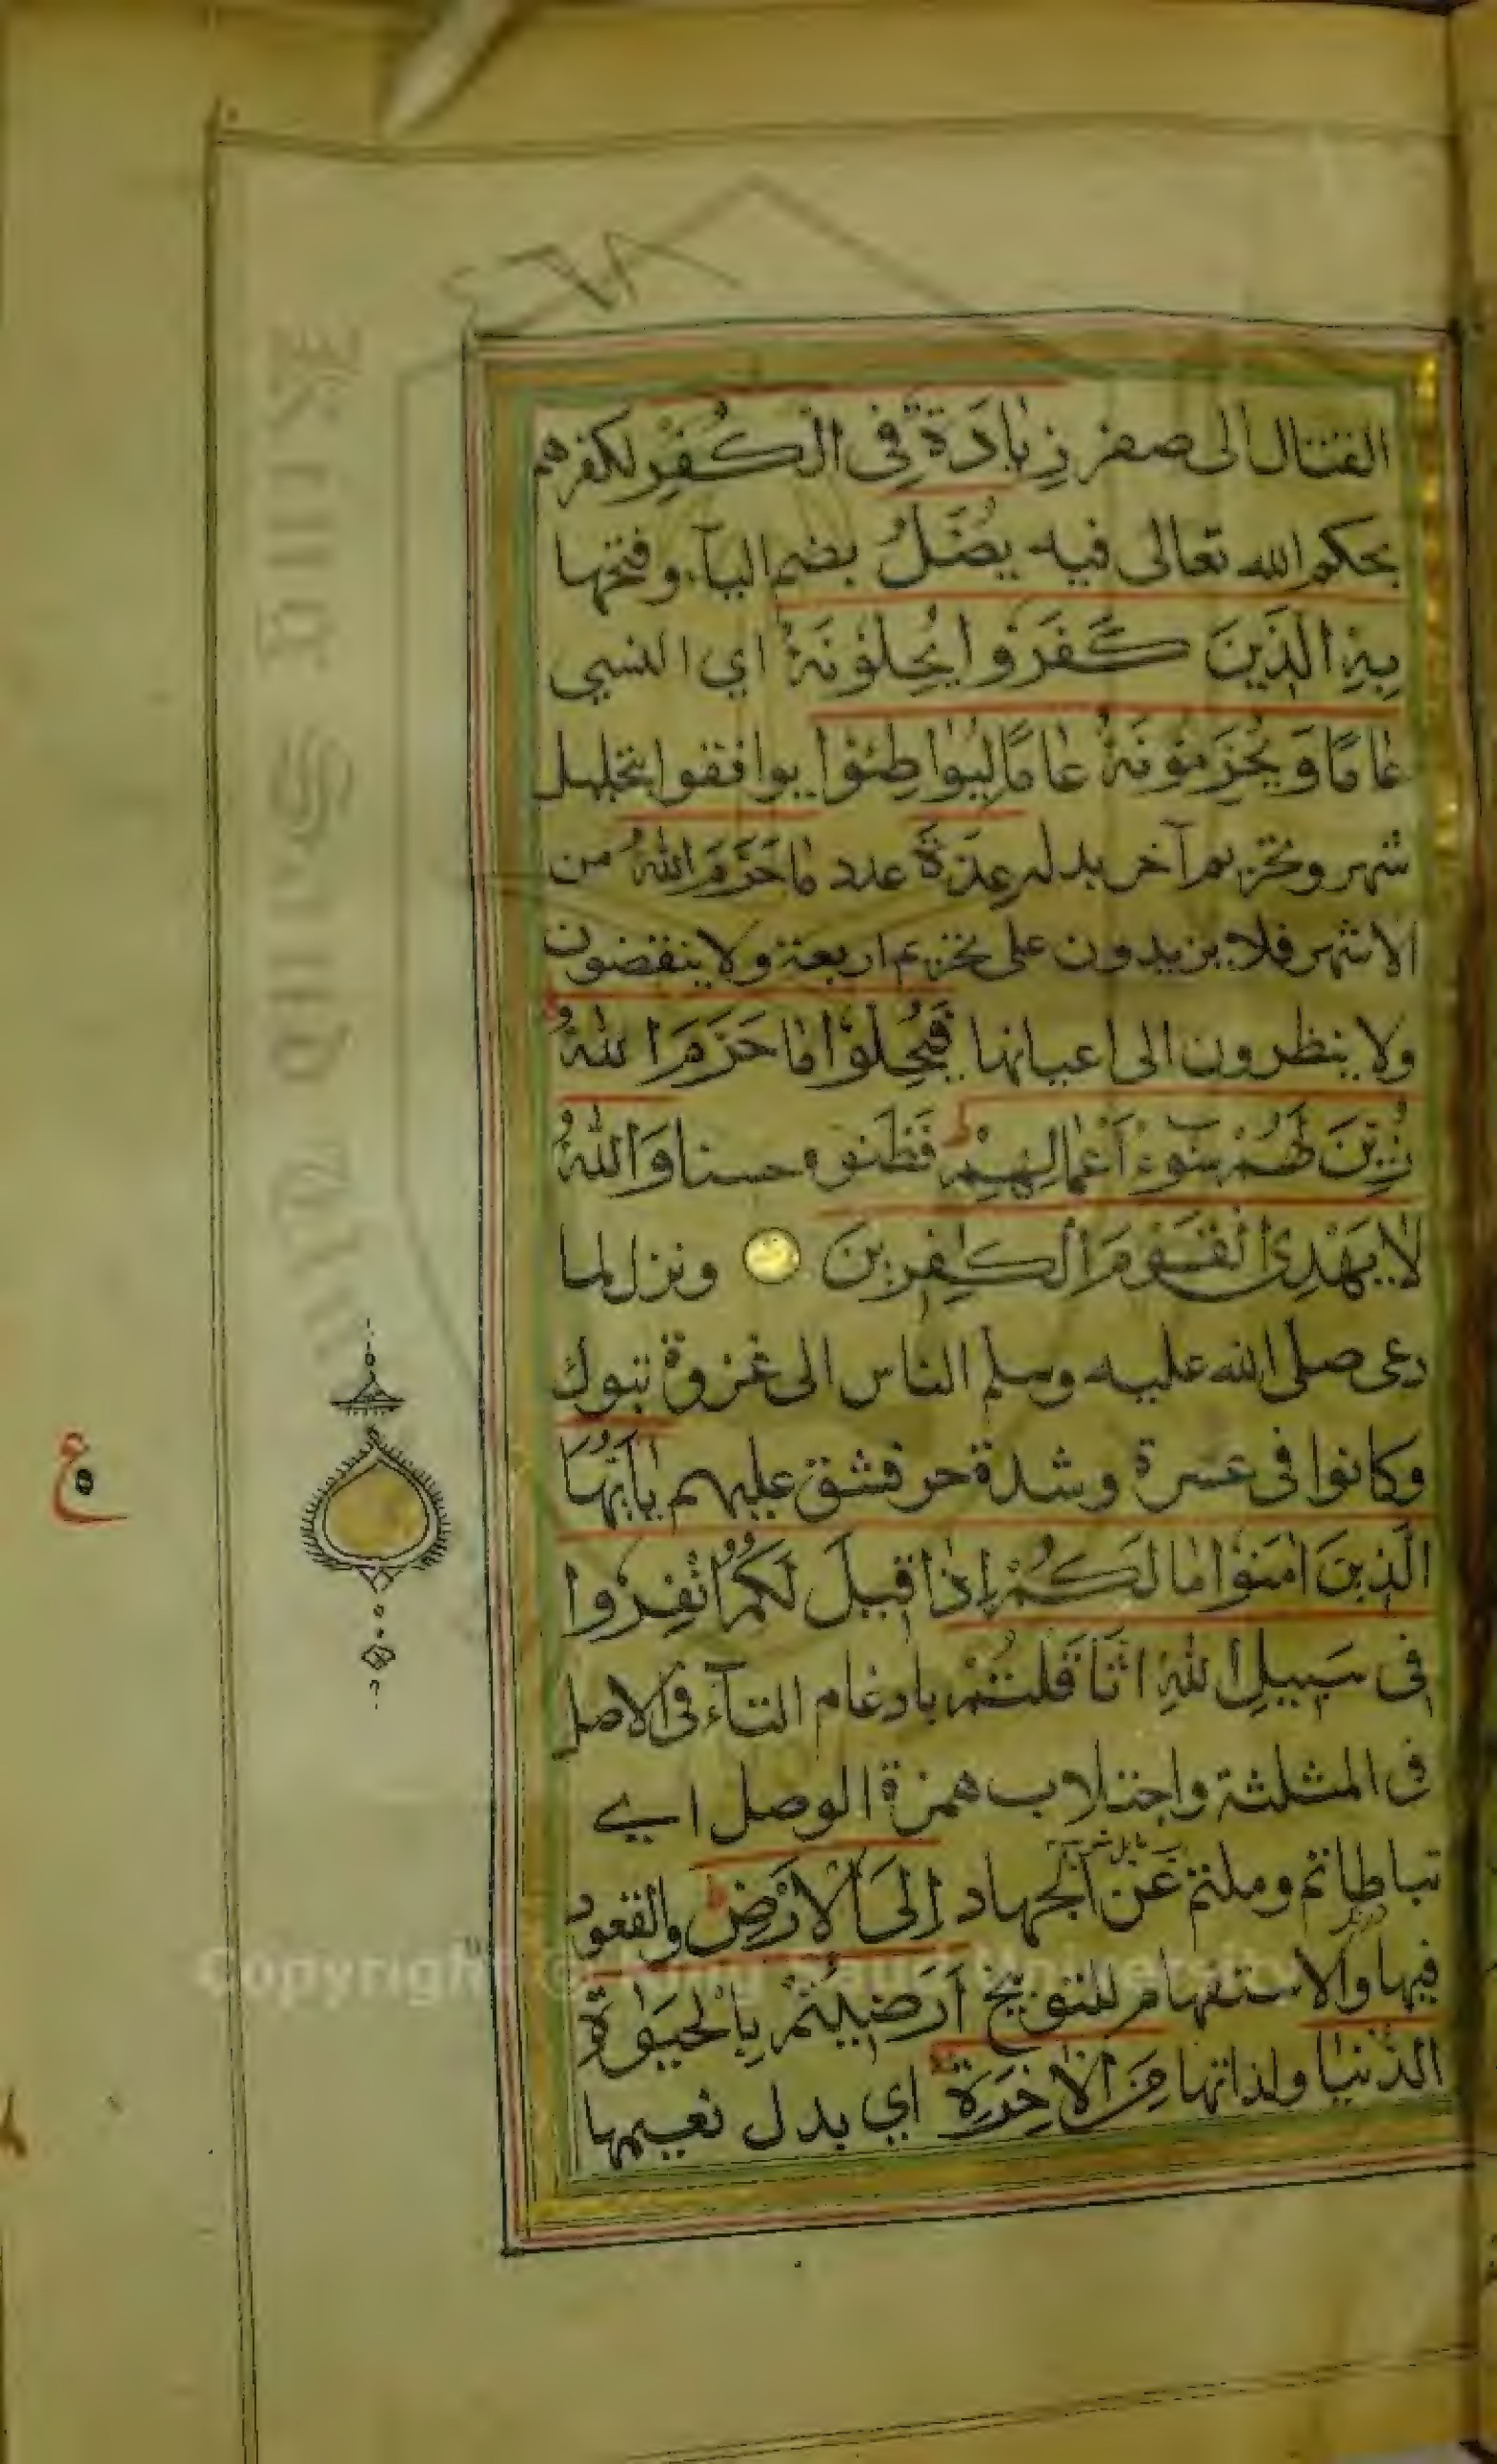 القتال الى صفر زِيٰادَةٌ فِى الْكُفْرِ لكفرهم
بحكم الله تعالى فيه يُضَلُّ بضم اليآء وفتحها
بِهِ الَّذِينَ كَفَرُوا يُحِلُّونَهُ اي النسي
عٰامًا وَيُحَرِّمُونَهُ عٰامًا لِيُوٰاطِئُوا يوافقوا بتحليل
شهر وتحريم آخر بدله عِدَّةَ عدد مٰا حَرَّمَ اللّٰهُ من
الاشهر فلا يزيدون على تحريم اربعة ولا ينقصون
ولا ينظرون الى اعيانها فَيُحِلُّوا مٰا حَرَّمَ اللّٰهُ
زُيِّنَ لَهُمْ سُوٓءُ أَعْمَالِهِمْ فظنوه حسنا وَاللّٰهُ
لٰا يَهْدِى الْقَوْمَ الْكٰفِرِينَ ونزل لما
دعى صلى الله عليه وسلم الناس الى غزوة تبوك
وكانوا فى عسرة وشدة حر فشق عليهم يٰٓاأَيُّهَا
الَّذِينَ اٰمَنُوا مٰا لَكُمْ إِذٰا قِيلَ لَكُمُ انْفِرُوا
فِى سَبِيلِ اللّٰهِ اثَّاقَلْتُمْ بادغام التآء فى الاصل
فى المثلثة واجتلاب همزة الوصل اي
تباطاتم وملتم عن الجهاد إِلَى الْاَرْضِ والقعود
فيها والاستفهام للتوبيخ أَرَضِيتُمْ بِالْحَيٰوةِ
الدُّنْيٰا ولذاتها مِنَ الْاٰخِرَةِ اي بدل نعيمها
ع
Copyright © King Saud University
King Saud University